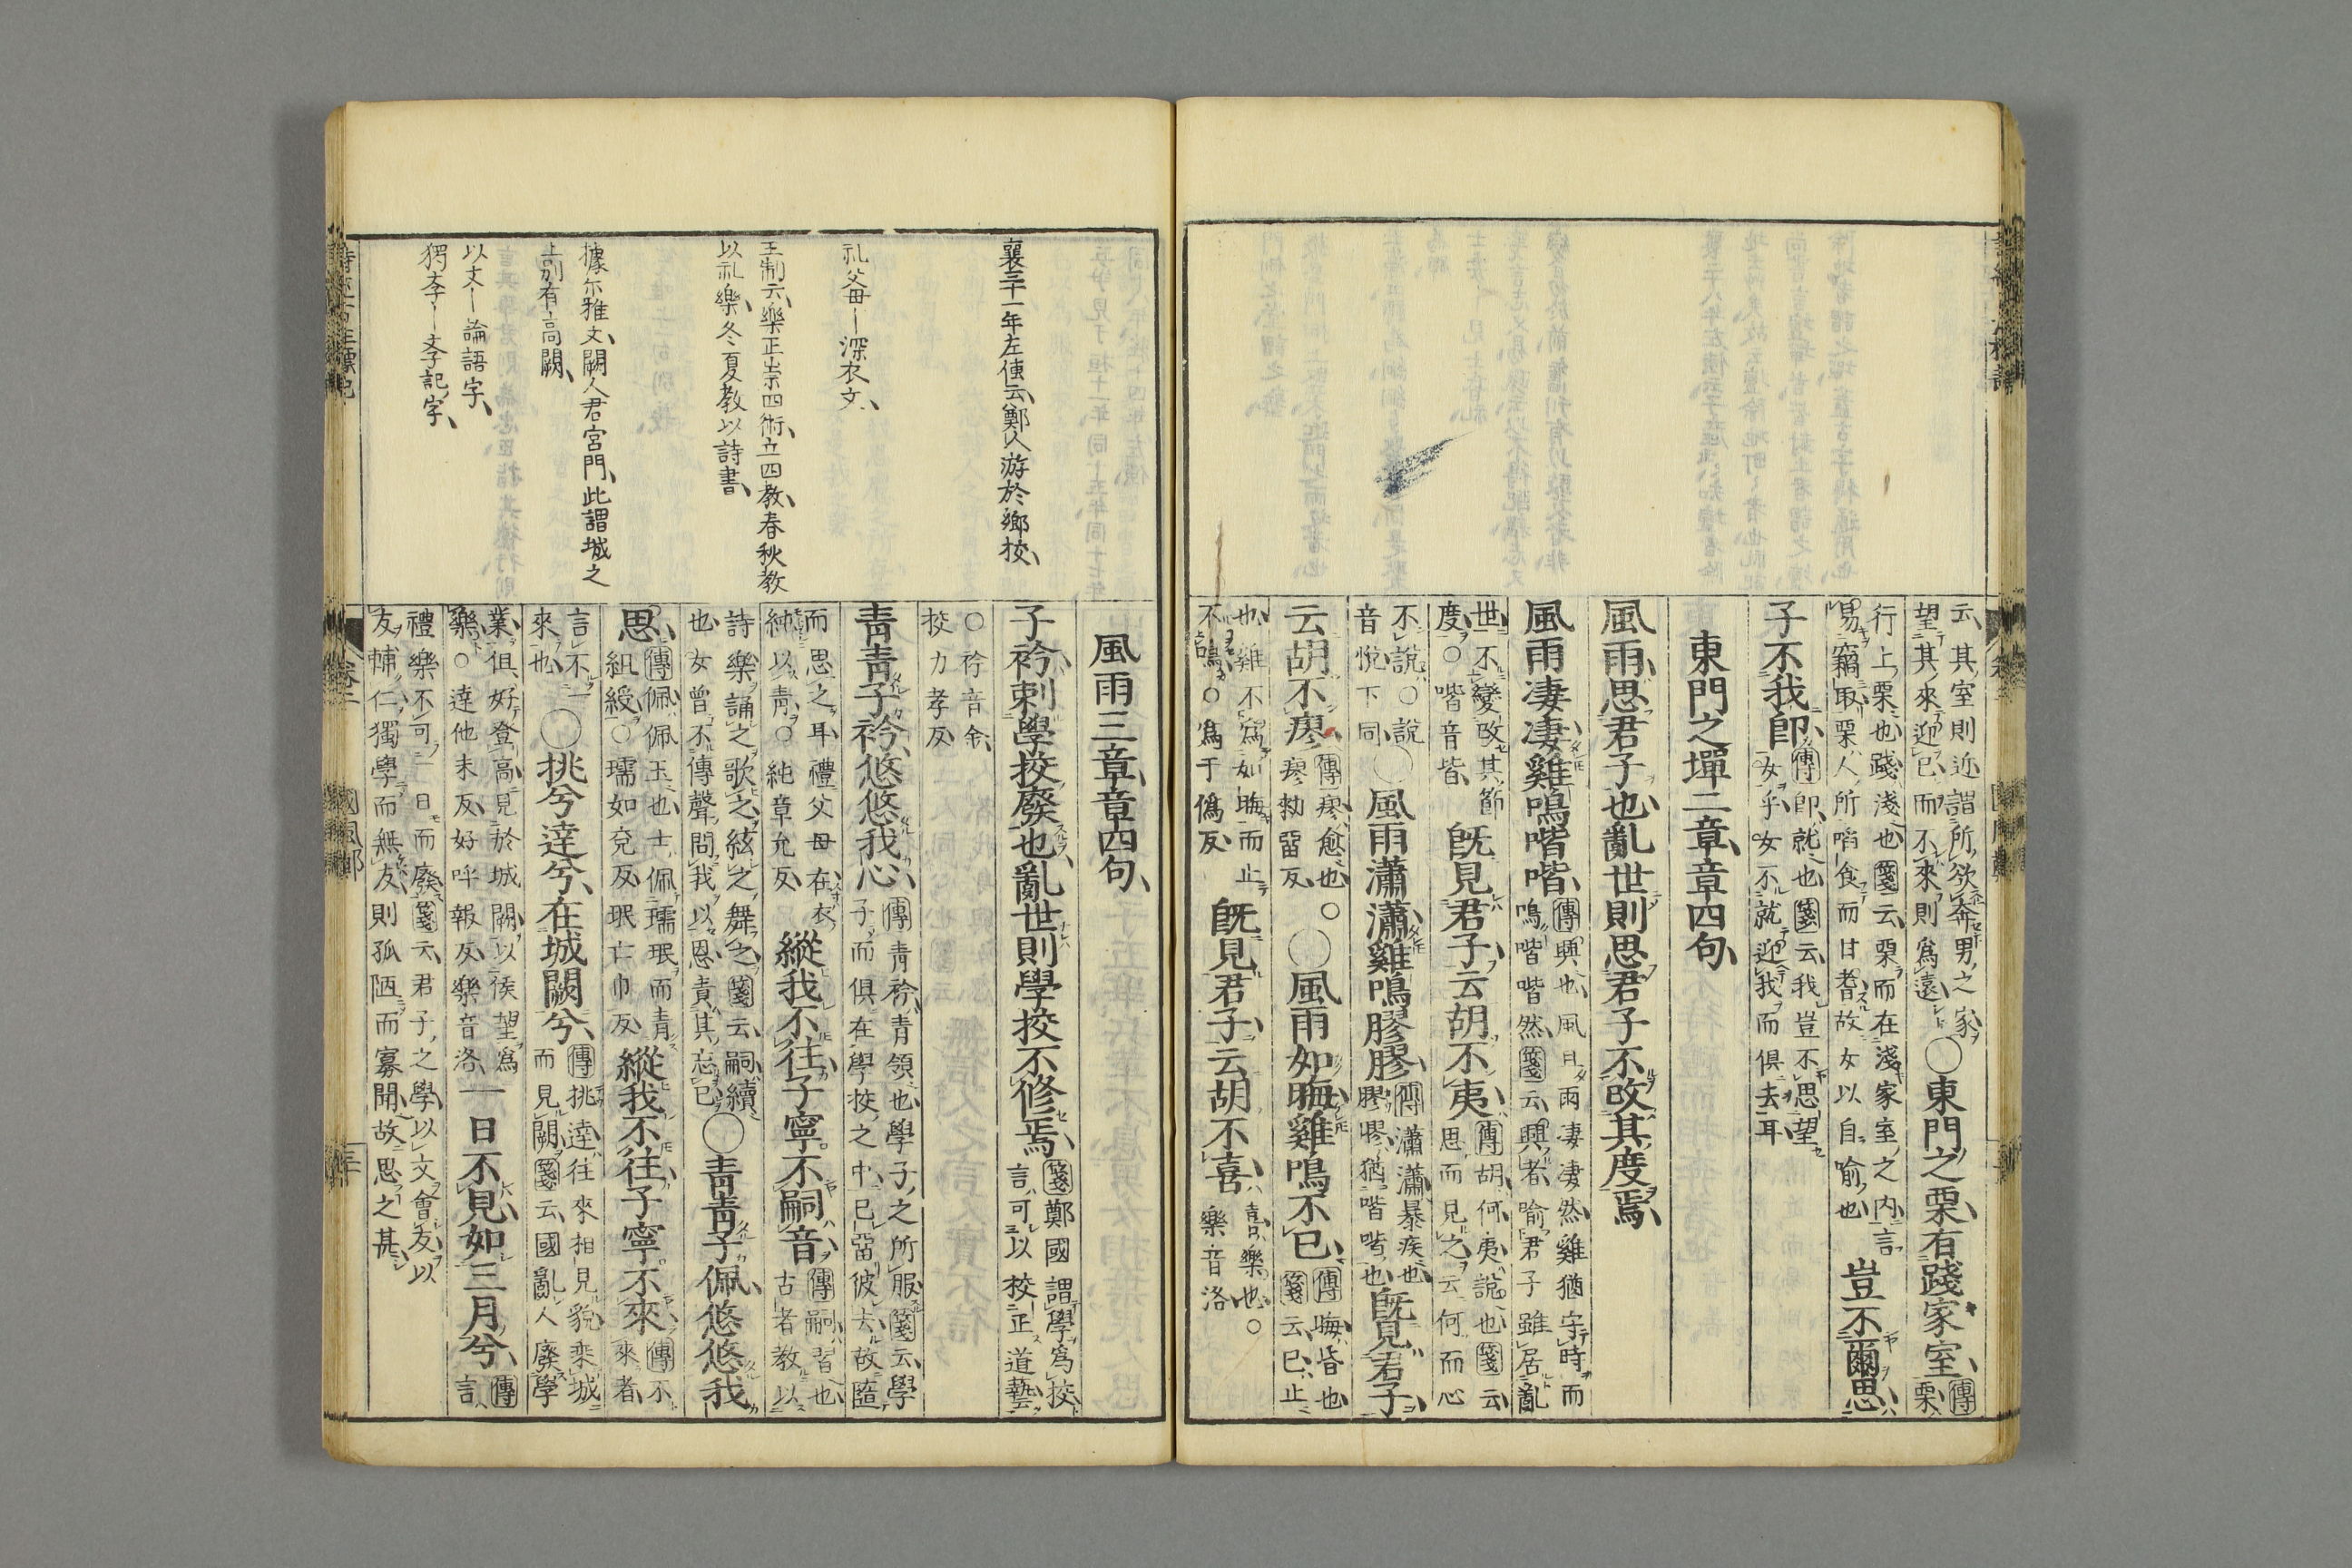 云其室則近謂所欲奔男之家
望其來迎已而不來則爲遠
○東門之栗有踐家室
傳
栗
行上栗也踐淺也箋云栗而在淺家室之内言
易竊取栗人所啗食而甘耆故女以自喻也
豈不爾思
子不我卽
傳卽就也箋云我豈不思望
女乎女不就迎我而俱去耳
東門之墠二章章四句
風雨思君子也亂世則思君子不改其度焉
風雨凄凄雞鳴喈喈
傳興也風且雨凄凄然雞猶守時而
鳴喈喈然箋云興者喻君子雖居亂
世不變改其節
度○喈音皆
既見君子云胡不夷
傳胡何夷說也箋云
思而見之云何而心
不說○說
音悅下同
○風雨瀟瀟雞鳴膠膠
傳瀟瀟暴疾也
膠膠猶喈喈也
既見君子
云胡不瘳
傳瘳愈也○
瘳勑留反
○風雨如晦雞鳴不已
傳晦昏也
箋云已止
也雞不爲如晦而止
不鳴○爲于僞反
既見君子云胡不喜
喜樂也○
樂音洛
襄三十一年左傳云鄭人游於鄉校
礼父母―深衣文
王制云樂正崇四術立四教春秋教
以礼樂冬夏教以詩書
據尔雅文闕人君宮門此謂城之
上別有高闕
以文―論語字
風雨三章章四句
子衿刺學挍廢也亂世則學挍不修焉
箋鄭國謂學爲挍
言可以校正道藝
○衿音金
挍力孝反
靑靑子衿悠悠我心
傳青衿青領也學子之所服箋云學
子而俱在學挍之中已留彼去故隨
而思之耳禮父母在衣
純以靑○純章允反
縱我不往子寧不嗣音
傳嗣習也
古者教以
詩樂誦之歌之絃之舞之箋云嗣續
也女曾不傳聲問我以恩責其忘已
○靑靑子佩悠悠我
思
傳佩佩玉也士佩瓀珉而青
組綬○瓀如兗反珉亡巾反
縱我不往子寧不來
傳不
來者
言不一
來也
○挑兮達兮在城闕兮
傳挑達往來相見貌乘城
而見闕箋云國亂人廢學
業俱好登高見於城闕以候望爲
樂○達他末反好呼報反樂音洛
一日不見如三月兮
傳
言
禮樂不可一日而廢箋云君子之學以文會友以
友輔仁獨學而無友則孤陋而寡聞故思之甚